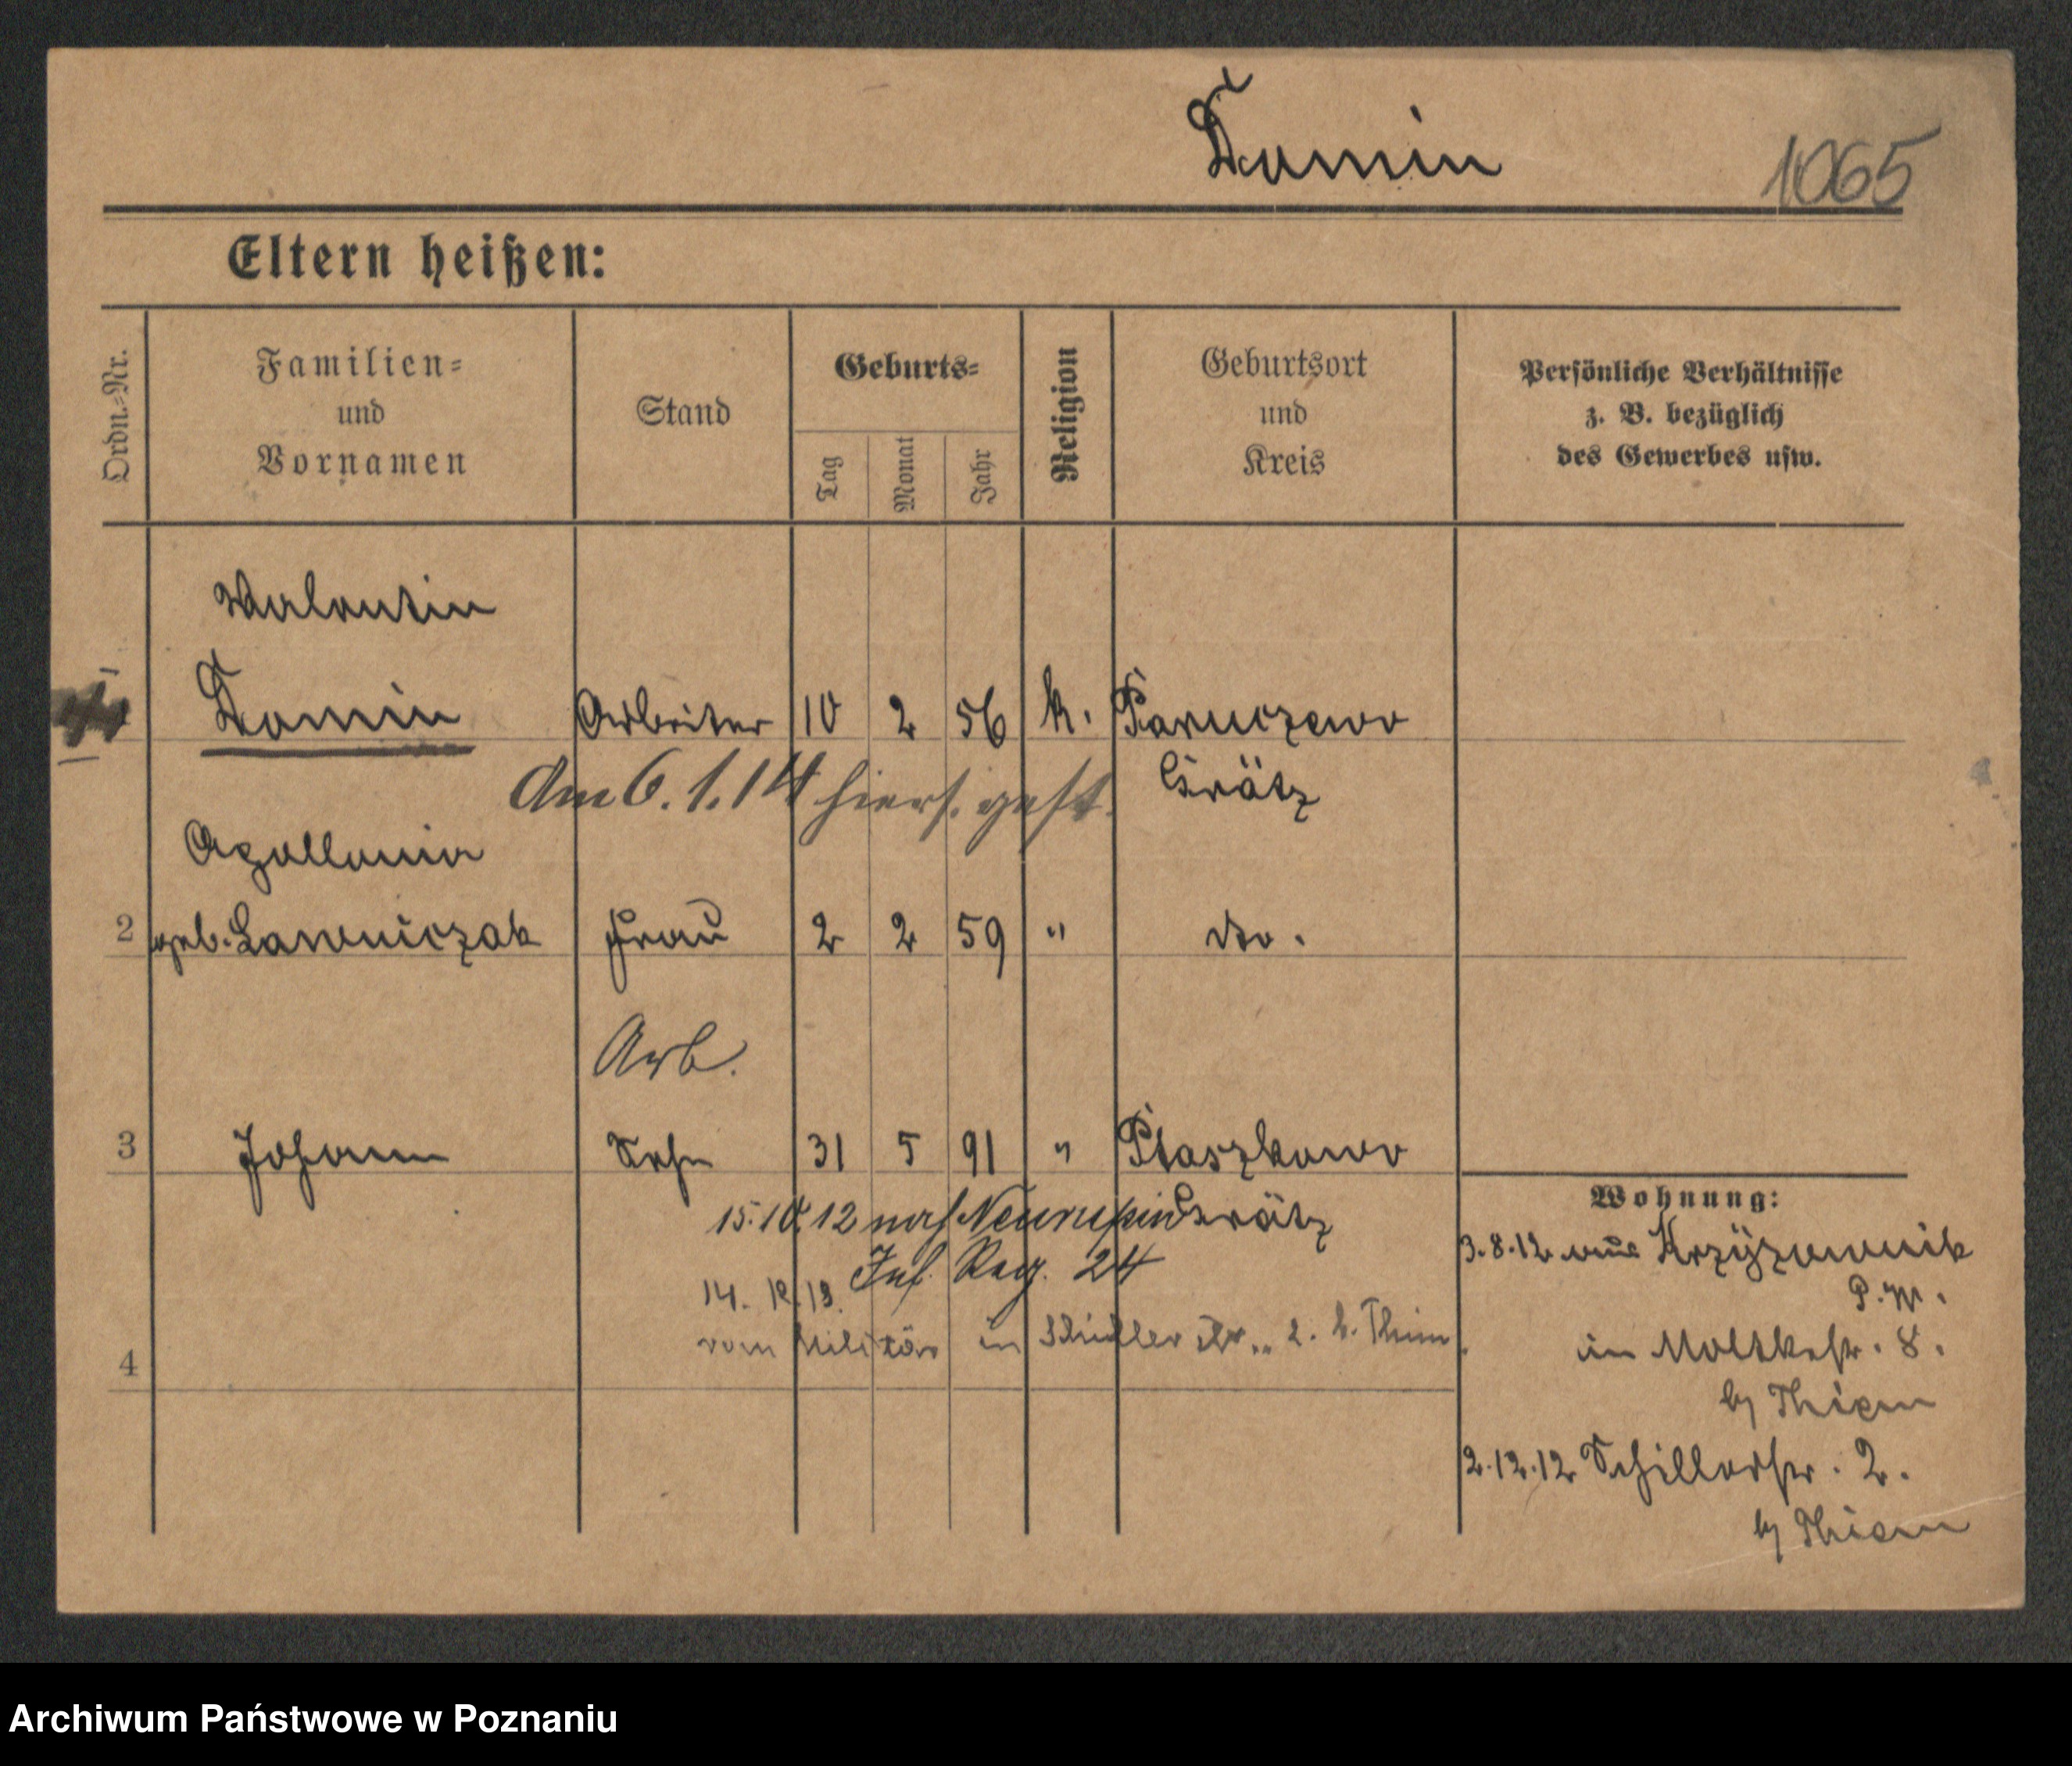 Domin
1065
Eltern heißen:
Ordn.-Nr.
Familien-
und
Vornamen
Stand
Geburts-
Tag
Monat
Jahr
Religion
Geburtsort
und
Kreis
Persönliche Verhältnisse
z. B. bezüglich
des Gewerbes usw.
Valentin
Domin Arbeiter 10 2 56 k. Paruczewo
Am 6. 1. 14 hiers. gest. Grätz
Apollonia
2 geb. Lawniczak Frau 2 2 59 " do.
Arb.
3 Johann Sohn 31 5 91 " Ptaszkowo
Wohnung:
15.10.12 nach Neuruppin Grätz
Inf. Reg. 24
3.8.12 aus Krzyżownik
P. W.
14. 12. 13.
vom Militär in Schiller str. 2. b. Thiem
4
in Moltkestr. 8.
by Thiem
2.12.12 Schillerstr. 2.
by Thiem
Archiwum Państwowe w Poznaniu